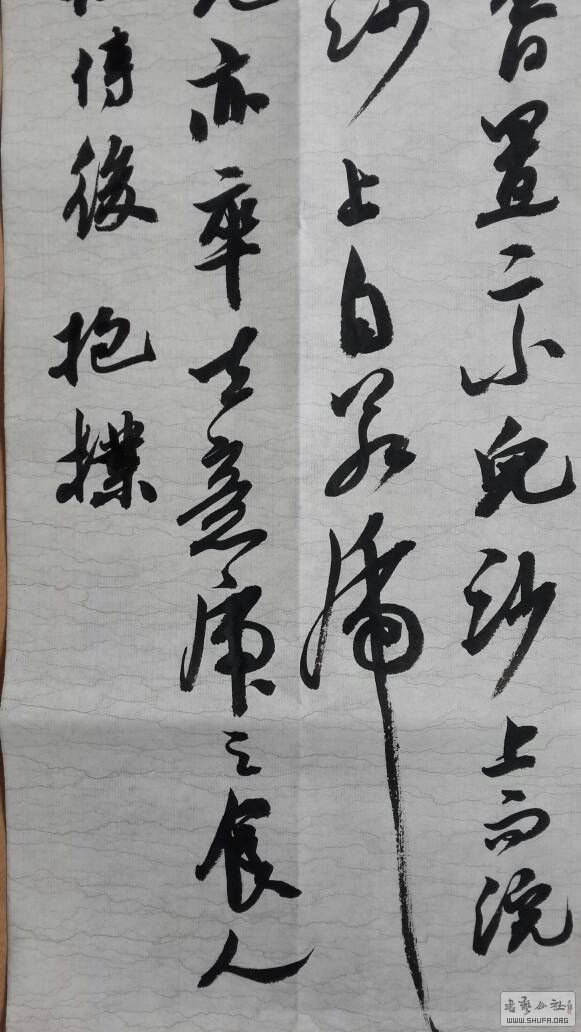 置二小兒沙上而浣
沙上自若虎
亦卒去意虎之食人
傳後 抱樸
書藝公社
WWW.SHUFA.ORG